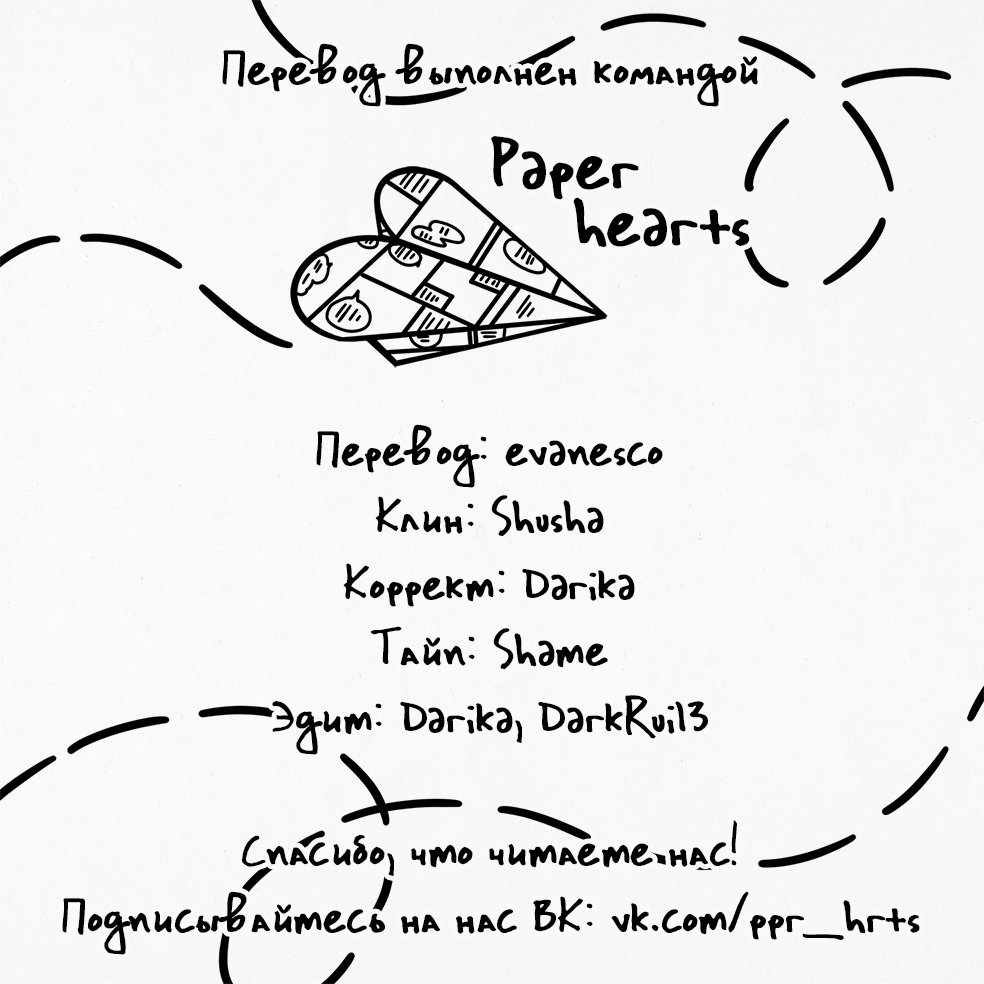 Перевод выполнен командой
Paper
hearts
Перевод: evanesco
Клин: Shusha
Коррект: Darika
Тайп: Shame
Эдит: Darika, DarkRui13
Спасибо, что читаете нас!
Подписывайтесь на нас ВК: vk.com/ppr_hrts